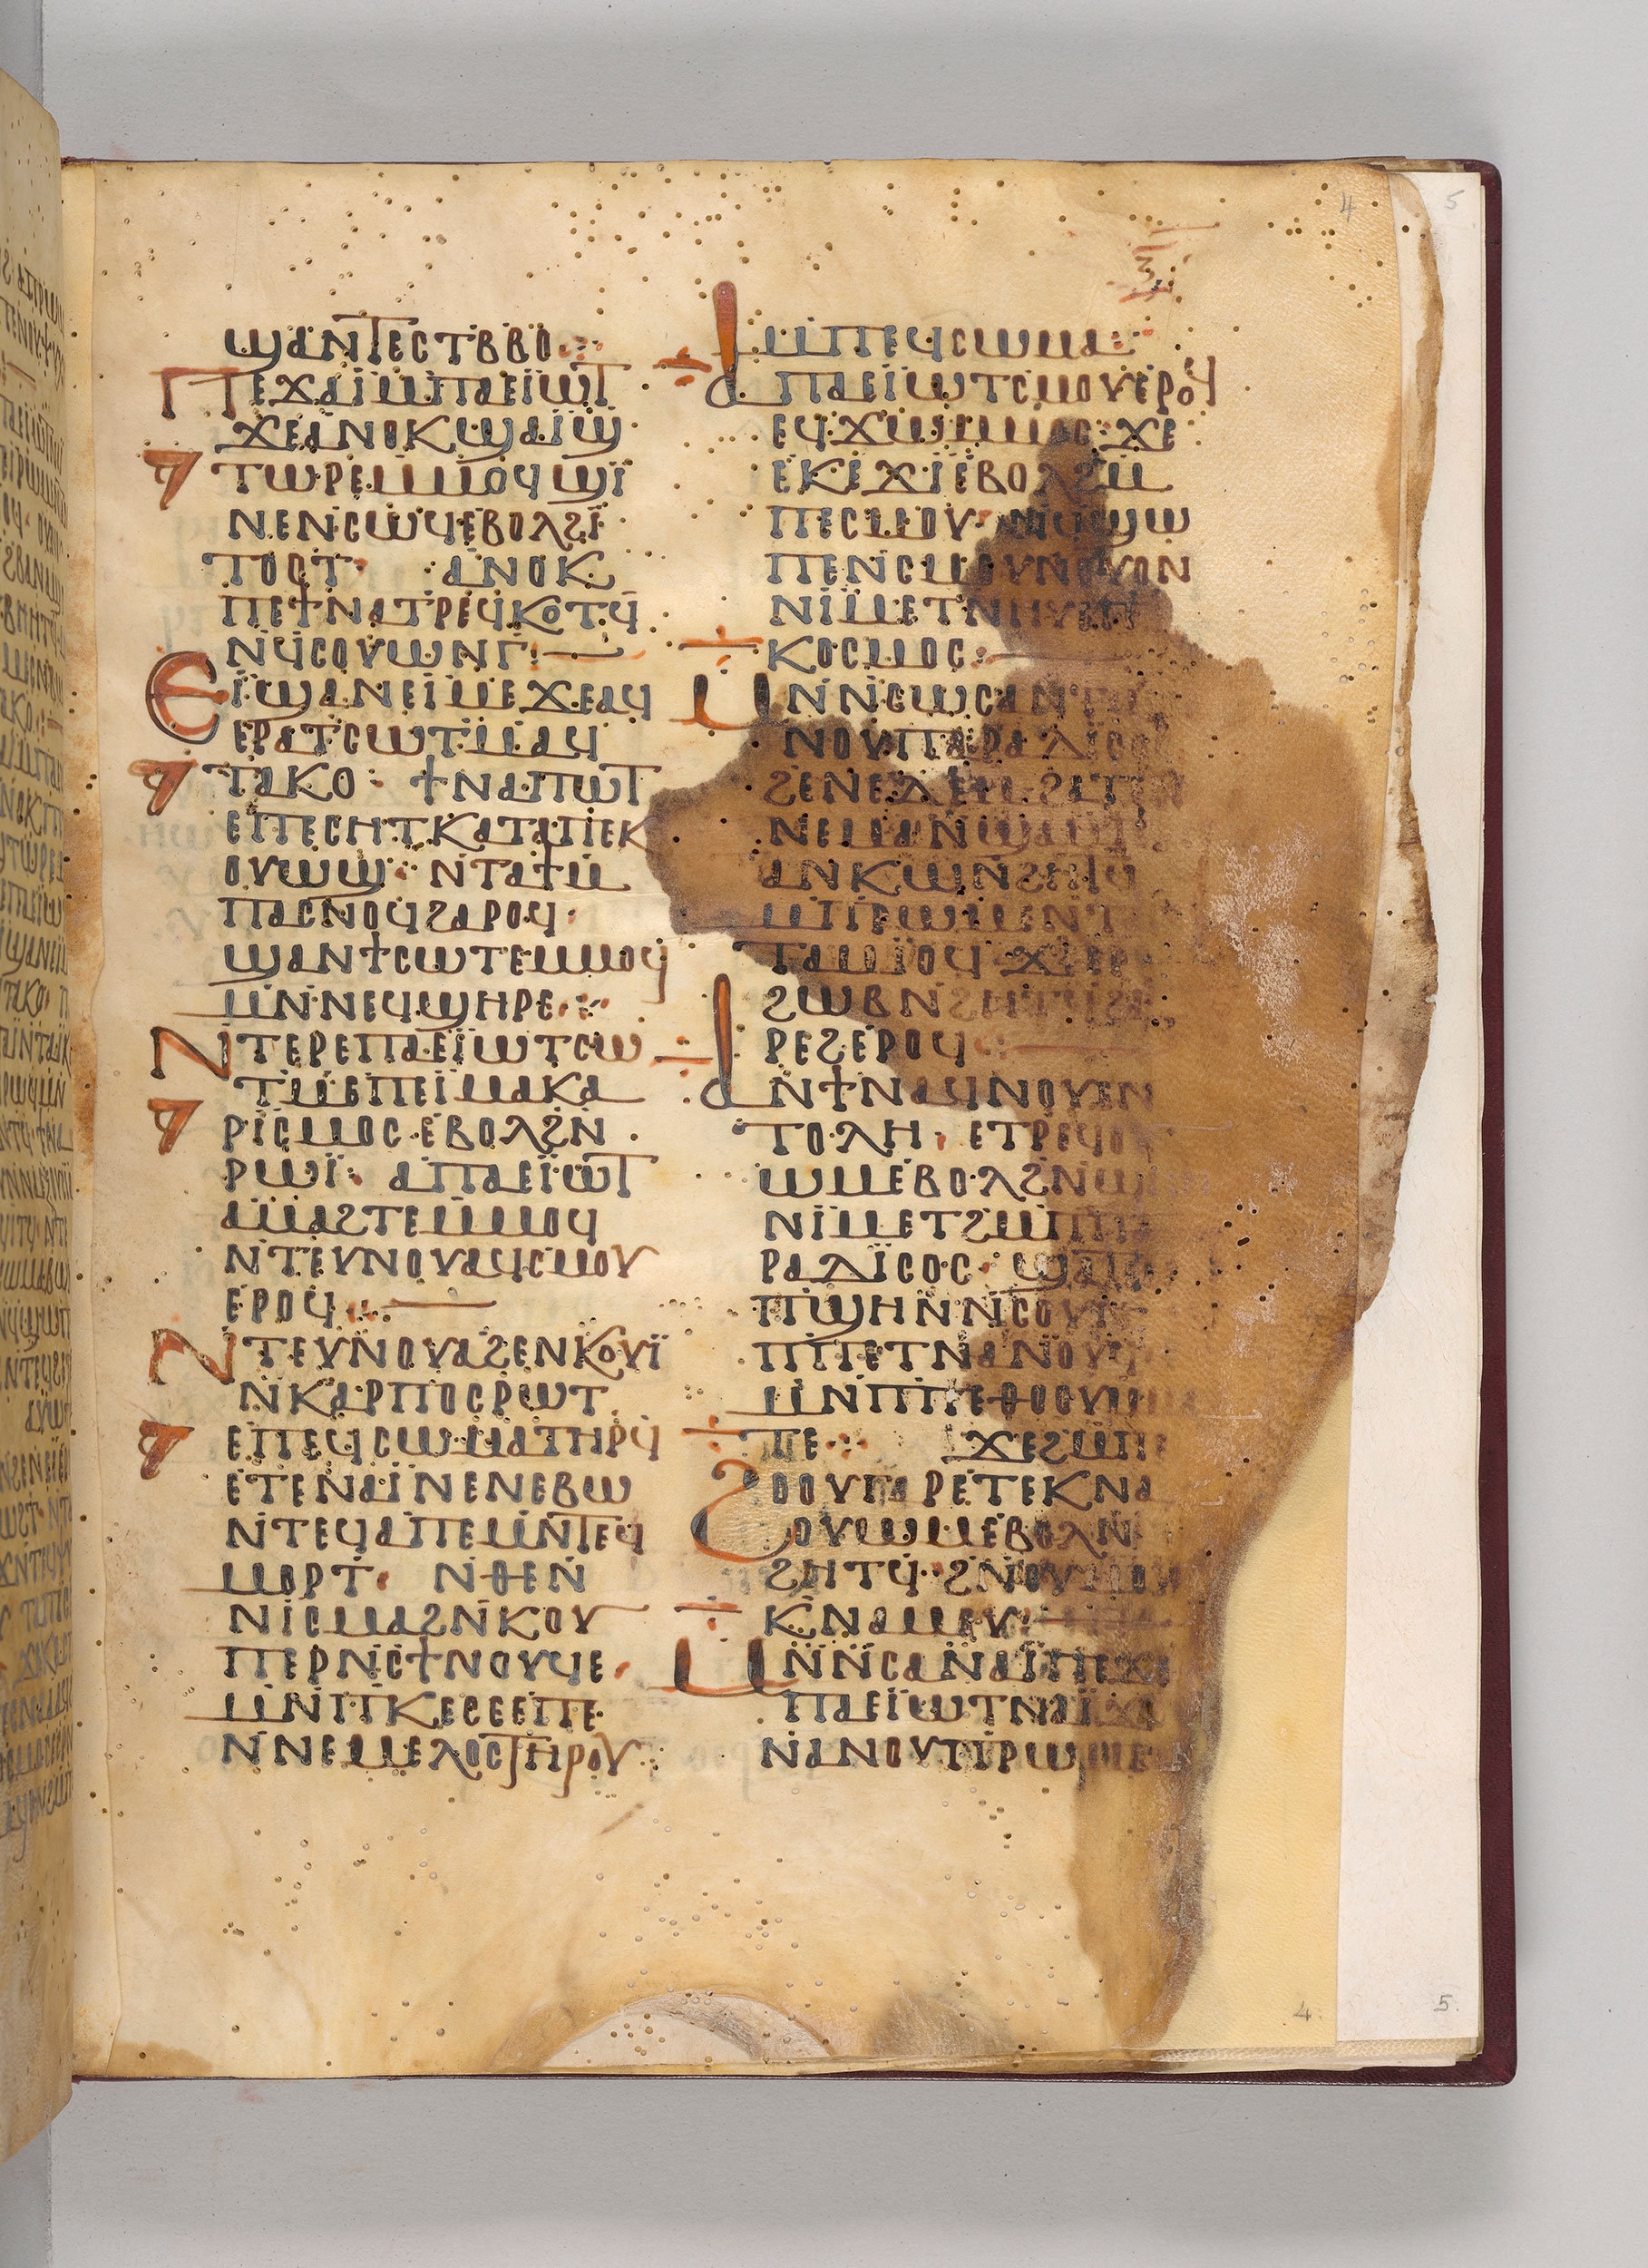 ϣⲁⲛⲧⲉⲥⲧⲃⲃⲟ
ⲡⲉϫⲁⲓ̈ⲙⲡⲁⲉⲓⲱⲧ
ϫⲉⲁⲛⲟⲕϣⲁⲓ̈ϣ
ⲧⲱⲣⲉⲙⲙⲟϥϣⲓ
ⲛⲉⲛⲥⲱϥⲉⲃⲟⲗϩⲓ
ⲧⲟⲟⲧ· ⲁⲛⲟⲕ
ⲡⲉϯⲛⲁⲧⲣⲉϥⲕⲟⲧϥ
ⲛϥⲥⲟⲩⲱⲛⲅ̄
ⲉⲓ̈ϣⲁⲛⲉⲓⲙⲉϫⲉⲁϥ
ⲉⲣⲁⲧⲥⲱⲧⲙⲁϥ
ⲧⲁⲕⲟ· ϯⲛⲁⲡⲱⲧ
ⲉⲡⲉⲥⲏⲧⲕⲁⲧⲁⲡⲉⲕ
ⲟⲩⲱϣ· ⲛⲧⲁϯⲙ
ⲡⲁⲥⲛⲟϥϩⲁⲣⲟϥ·
ϣⲁⲛϯⲥⲱⲧⲉⲙⲙⲟϥ
ⲙⲛⲛⲉϥϣⲏⲣⲉ
ⲛⲧⲉⲣⲉⲡⲁⲉⲓ̈ⲱⲧⲥⲱ
ⲧⲙⲉⲡⲉⲓⲙⲁⲕⲁ
ⲣⲓⲥⲙⲟⲥⲉⲃⲟⲗϩⲛ
ⲣⲱⲓ̈· ⲁⲡⲁⲉⲓ̈ⲱⲧ
ⲁⲙⲁϩⲧⲉⲙⲙⲟϥ
ⲛⲧⲉⲩⲛⲟⲩⲁϥⲥⲙⲟⲩ
ⲉⲣⲟϥ
ⲛⲧⲉⲩⲛⲟⲩⲁϩⲉⲛⲕⲟⲩⲓ̈
ⲛⲕⲁⲣⲡⲟⲥⲣⲱⲧ
ⲉⲡⲉϥⲥⲱⲙⲁⲧⲏⲣϥ
ⲉⲧⲉⲛⲁⲓⲛⲉⲛⲉⲃⲱ
ⲛⲧⲉϥⲁⲡⲉⲙⲛⲧⲉϥ
ⲙⲟⲣⲧ· ⲛⲑⲉⲛ
ⲛⲓⲥⲙⲁϩⲛⲕⲟⲩ
ⲡⲉⲣⲛⲥϯⲛⲟⲩϥⲉ
ⲙⲛⲡⲕⲉⲥⲉⲉⲡⲉ
ⲛⲛⲉⲙⲉⲗⲟⲥⲧⲏⲣⲟⲩ
ⲙⲡⲉϥⲥⲱⲙⲁ
ⲁⲡⲁⲉⲓ̈ⲱⲧⲥⲙⲟⲩⲉⲣⲟϥ
ⲉϥϫⲱⲙⲙⲟⲥϫⲉ
ⲉⲕⲉϫⲓⲉⲃⲟⲗϩⲙ
ⲡⲉⲥⲙⲟⲩ ⲛϥϣⲱ
ⲡⲉⲛⲥⲙⲟⲩⲛⲟⲩⲟⲛ
ⲛⲓⲙⲉⲧⲛⲏⲩⲉⲡ
ⲕⲟⲥⲙⲟⲥ
ⲙⲛⲛⲥⲱⲥⲁⲛⲧ
ⲛⲟⲩⲡⲁⲣⲁⲇⲓⲥⲟⲥ
ϩⲉⲛⲉⲗⲉ
ⲛⲉⲙⲁⲛϣⲱⲡⲉ
ⲁⲛⲕⲱⲛϩⲏⲧϥ
ⲙⲡⲣⲱⲙⲉⲛⲧ
ⲧⲁⲙⲓⲟϥ ϫⲉⲉϥⲉⲣ
ϩⲱⲃⲛϩⲏⲧϥ
ⲣⲉϩⲉⲣⲟϥ
ⲁⲛϯⲛⲁϥⲛⲟⲩⲉⲛ
ⲧⲟⲗⲏ· ⲉⲧⲣⲉϥⲟⲩ
ⲱⲙⲉⲃⲟⲗϩⲛϣⲏⲛ
ⲛⲓⲙⲉⲧϩⲙⲡⲡⲁ
ⲣⲁⲇⲓⲥⲟⲥ· ϣⲁⲧⲛ
ⲡϣⲏⲛⲛⲥⲟⲩⲛ
ⲡⲡⲉⲧⲛⲁⲛⲟⲩϥ
ⲙⲛⲡⲡⲉⲑⲟⲟⲩ
ⲡⲉ ϫⲉϩⲙⲡⲉ
ϩⲟⲟⲩⲅⲁⲣⲉⲧⲉⲕⲛⲁ
ⲟⲩⲱⲙⲉⲃⲟⲗⲛ
ϩⲏⲧϥ·ϩⲛⲟⲩⲙⲟⲩ
ⲕⲛⲁⲙⲟⲩ
ⲙⲛⲛⲥⲁⲛⲁⲓ̈ⲡⲉϫⲉ
ⲡⲁⲉⲓ̈ⲱⲧⲛⲁⲓ̈ϫⲉ
ⲛⲁⲛⲟⲩⲡⲣⲱⲙⲉ